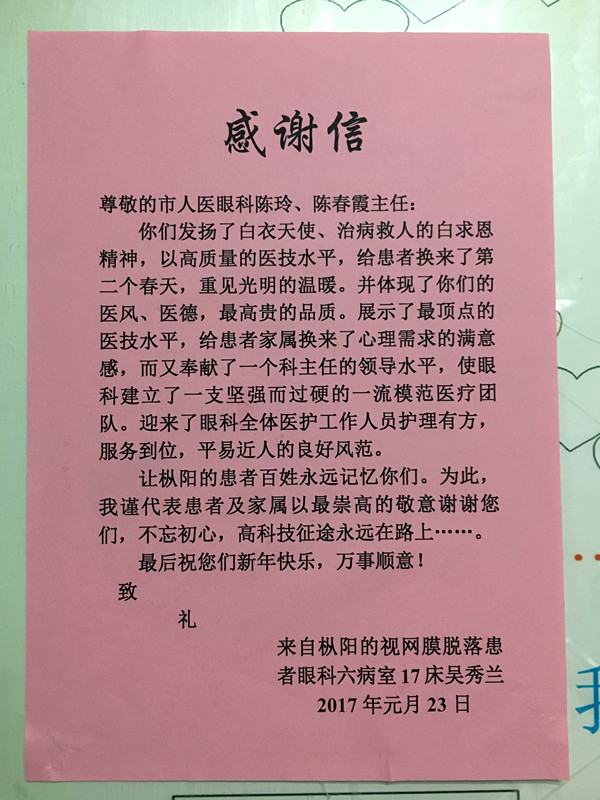 感谢信
尊敬的市人医眼科陈玲、陈春霞主任：
你们发扬了白衣天使、治病救人的白求恩
精神，以高质量的医技水平，给患者换来了第
二个春天，重见光明的温暖。并体现了你们的
医风、医德，最高贵的品质。展示了最顶点的
医技水平，给患者家属换来了心理需求的满意
感，而又奉献了一个科主任的领导水平，使眼
科建立了一支坚强而过硬的一流模范医疗团
队。迎来了眼科全体医护工作人员护理有方，
服务到位，平易近人的良好风范。
让枞阳的患者百姓永远记忆你们。为此，
我谨代表患者及家属以最崇高的敬意谢谢您
们，不忘初心，高科技征途永远在路上……。
最后祝您们新年快乐，万事顺意！
致
礼
来自枞阳的视网膜脱落患
者眼科六病室 17 床吴秀兰
2017 年元月 23 日